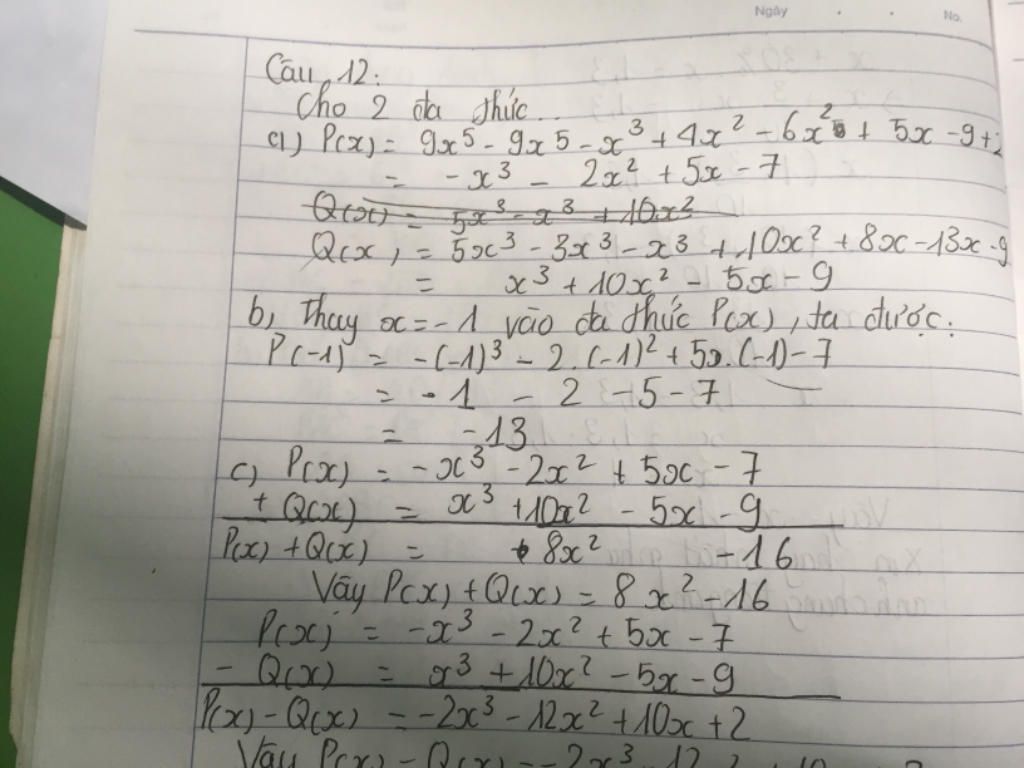 Ngày . . No.
Câu 12:
Cho 2 đa thức..
a) P(x) = 9x⁵ - 9x5 - x³ + 4x² - 6x² + 5x - 9 + 2
= -x³ - 2x² + 5x - 7
Q(x) = 5x³ - x³ + 10x²
Q(x) = 5x³ - 3x³ - x³ + 10x² + 8x - 13x - 9
= x³ + 10x² - 5x - 9
b, Thay x = -1 vào đa thức P(x), ta được:
P(-1) = -(-1)³ - 2.(-1)² + 5.(-1) - 7
= -1 - 2 - 5 - 7
= -13
c) P(x) = -x³ - 2x² + 5x - 7
+ Q(x) = x³ + 10x² - 5x - 9
P(x) + Q(x) = 8x² - 16
Vậy P(x) + Q(x) = 8x² - 16
P(x) = -x³ - 2x² + 5x - 7
- Q(x) = x³ + 10x² - 5x - 9
P(x) - Q(x) = -2x³ - 12x² + 10x + 2
Vậy P(x) - Q(x) = -2x³ - 12x²